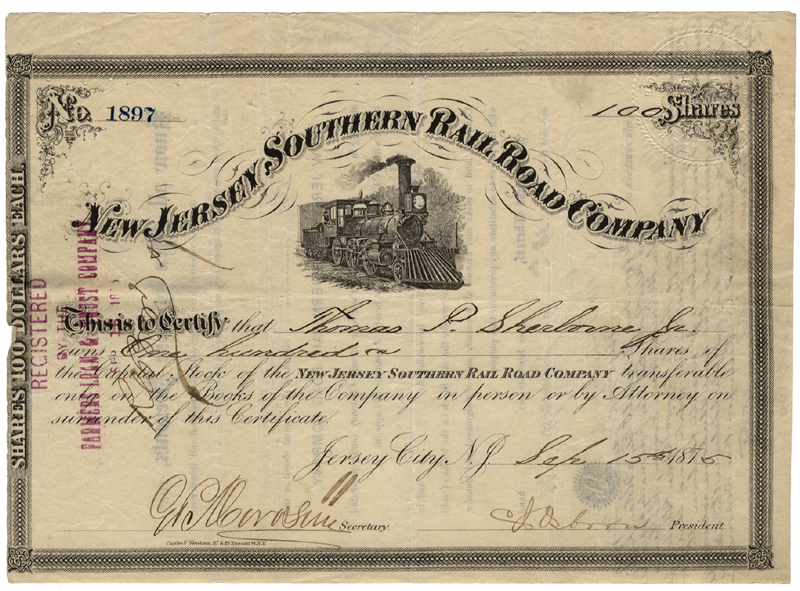 No. 1897
100 Shares
NEW JERSEY SOUTHERN RAIL ROAD COMPANY
SHARES 100 DOLLARS EACH.
REGISTERED
BY THE
FARMERS LOAN & TRUST COMPANY
This is to Certify that Thomas P. Sherborne Jr.
owns One hundred Shares of
the Capital Stock of the NEW JERSEY SOUTHERN RAIL ROAD COMPANY transferable
only on the Books of the Company in person or by Attorney on
surrender of this Certificate.
Jersey City, N.J. Sep 15th 1875
Secretary.
President.